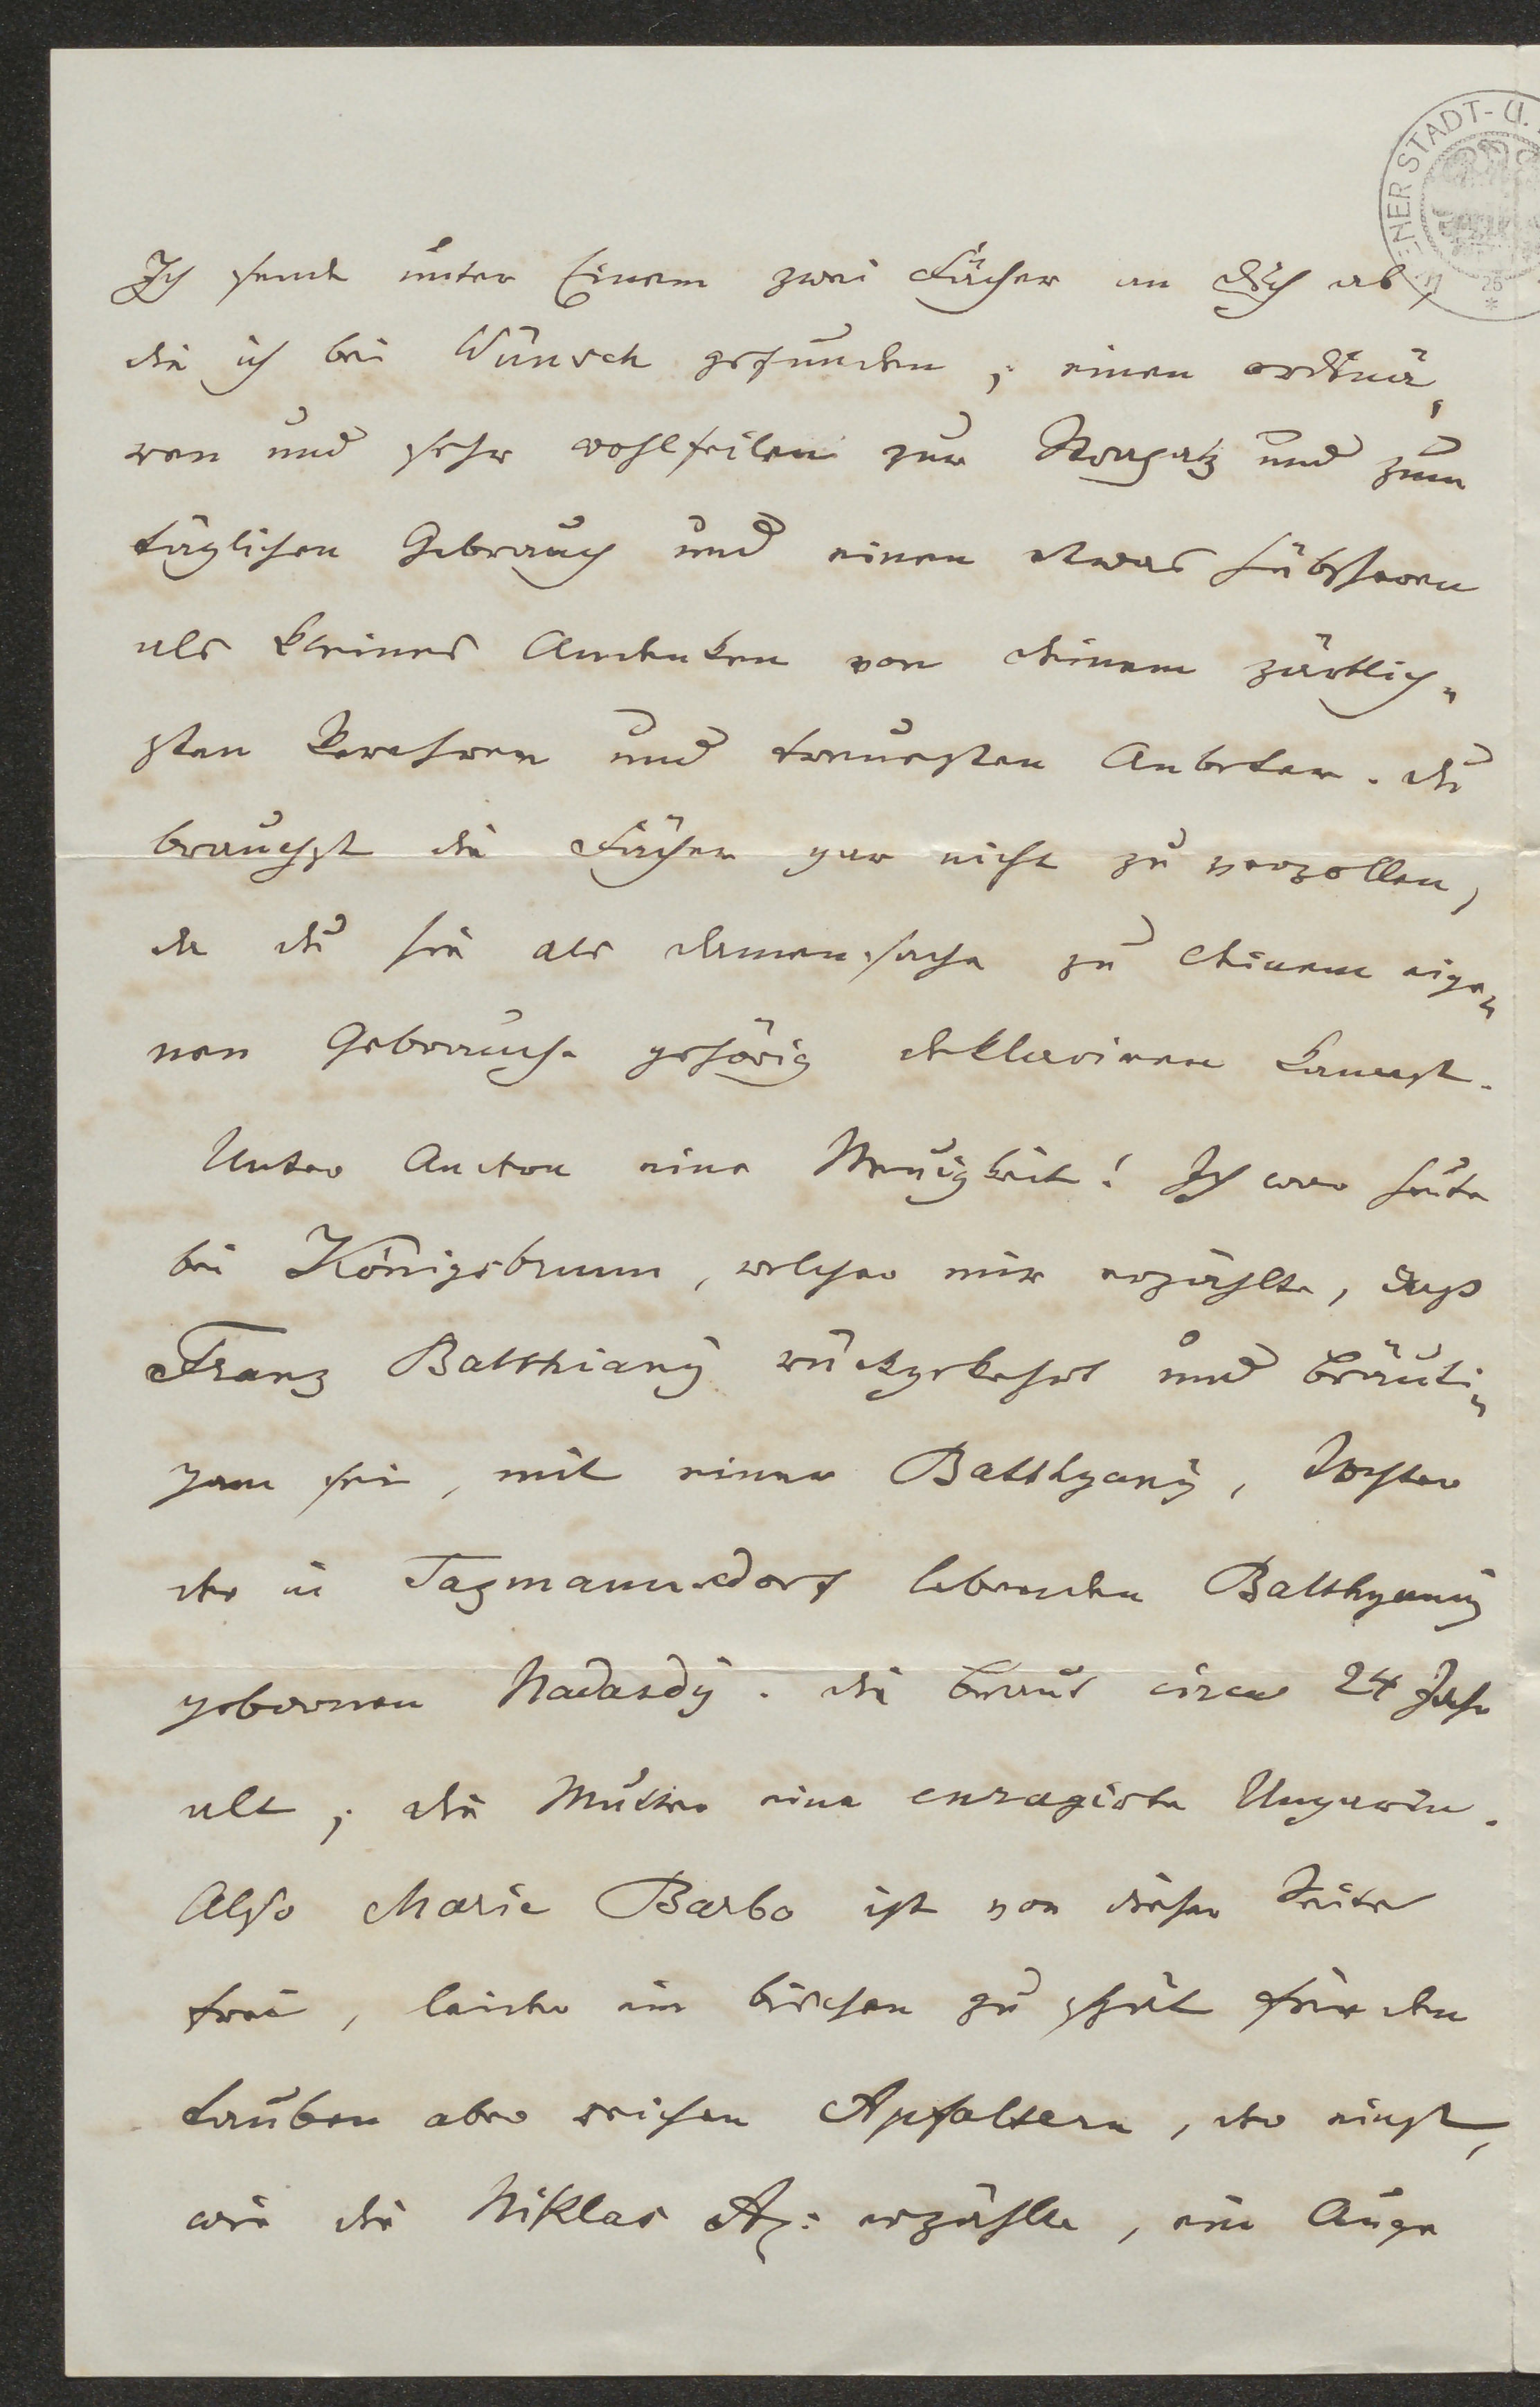 Ich sende unter Einem zwei Fächer an Dich ab,
die ich bei Wünsch gefunden; einen ordinä,
ren und sehr wohlfeilen zur und zum
täglichen Gebrauch und einen etwas hübscheren
als kleines Andenken von Deinem zärtlich„
sten Verehrer und treuesten Anbeter. Du
brauchst die Fächer gar nicht zu verzollen,
da Du sie als Damensache zu Deinem eige„
nen Gebrauche gehörig deklariren kannst.
Unter Andern eine Neuigkeit! Ich war heute
bei Königsbrunn, welcher mir erzählte, daß
Franz Batthiany rückgekehrt und Bräuti„
gam sei, mit einer Batthyany, Tochter
der in Tazmannsdorf lebenden Batthyany
gebornen Nadasdy. Die Braut circa 24 Jahr
alt; die Mutter eine enragirte Ungarin.
Also Marie Barbo ist von dieser Seite
frei, leider ein bischen zu spät für den
tauben aber reichen Apfaltern, der einst,
wie die Niklas A: erzählte, ein Auge
WIENER STADT- U.
26